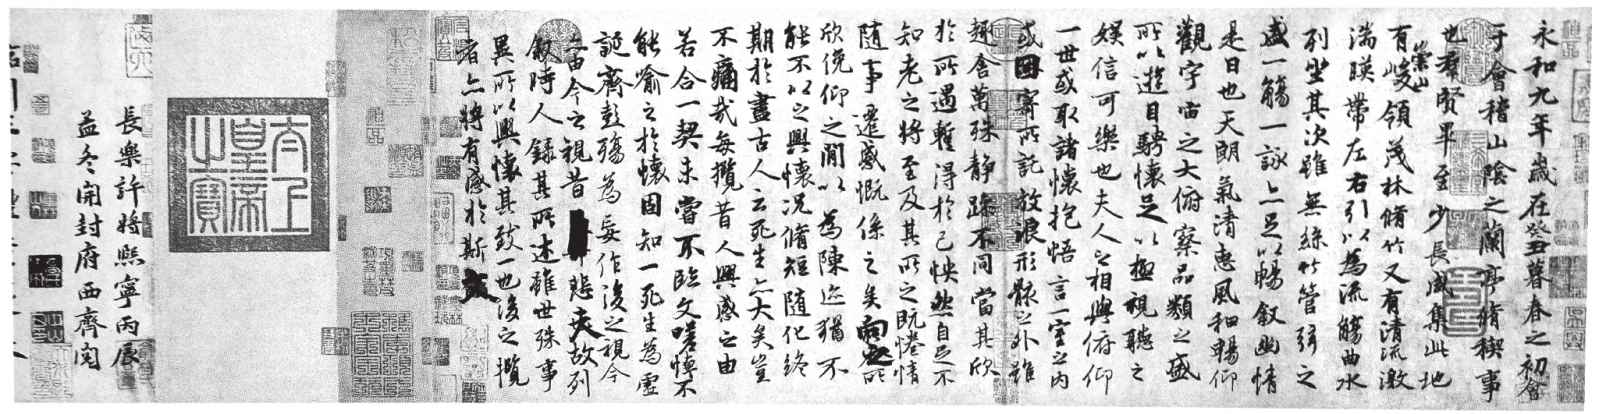 永和九年歲在癸丑暮春之初會
于會稽山陰之蘭亭脩稧事
也羣賢畢至少長咸集此地
有崇山峻領茂林脩竹又有清流激
湍暎帶左右引以為流觴曲水
列坐其次雖無絲竹管弦之
盛一觴一詠亦足以暢叙幽情
是日也天朗氣清惠風和暢仰
觀宇宙之大俯察品類之盛
所以遊目騁懷足以極視聽之
娛信可樂也夫人之相與俯仰
一世或取諸懷抱悟言一室之內
或因寄所託放浪形骸之外雖
趣舍萬殊靜躁不同當其欣
於所遇暫得於己怏然自足不
知老之將至及其所之既惓情
隨事遷感慨係之矣向之所
欣俛仰之閒以為陳迹猶不
能不以之興懷況脩短隨化終
期於盡古人云死生亦大矣豈
不痛哉每攬昔人興感之由
若合一契未嘗不臨文嗟悼不
能喻之於懷固知一死生為虛
誕齊彭殤為妄作後之視今
亦由今之視昔悲夫故列
叙時人錄其所述雖世殊事
異所以興懷其致一也後之攬
者亦將有感於斯文
太上皇帝之寶
長樂許將熙寧丙辰
孟冬開封府西齋閱